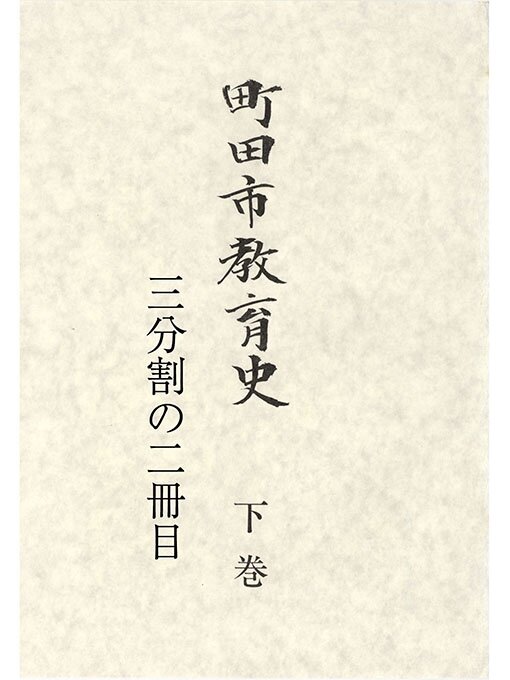 町田市教育史 下巻
三分割の二冊目